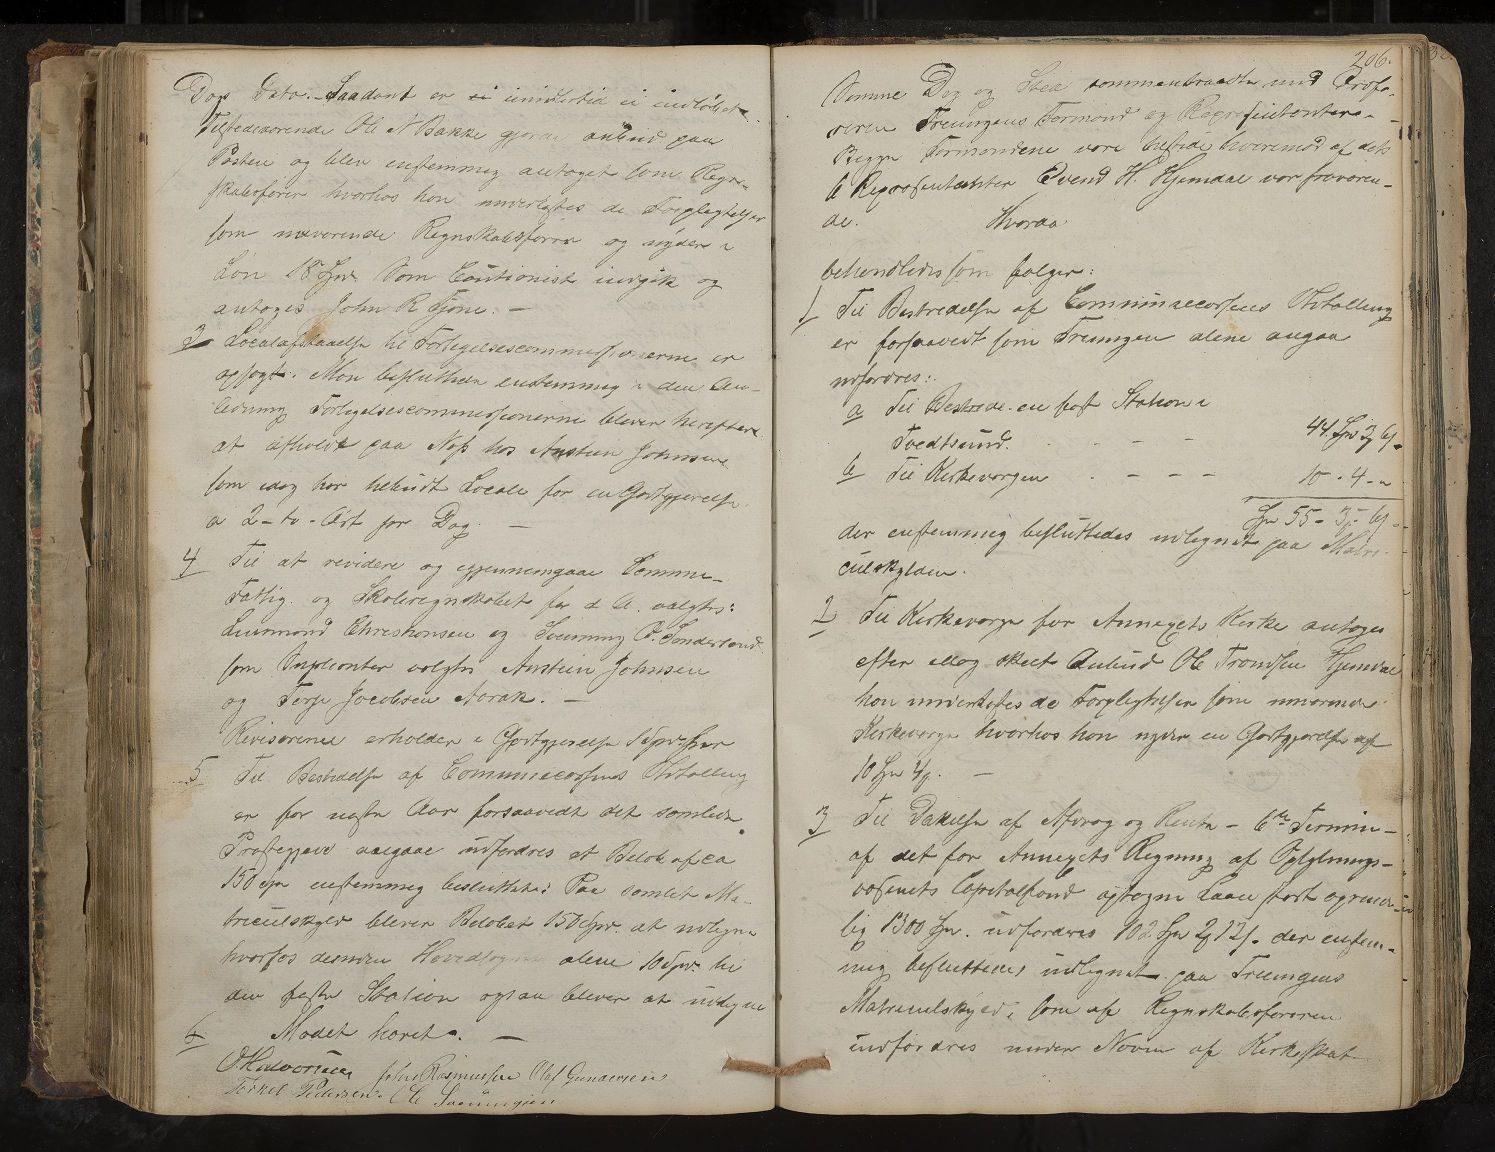 Dags Dato. Saadant er ei imidlertid ei indløbet.
Tilstedeværende Ole N Bakke gjorde anbud paa
Posten og blev enstemmig antaget som Regn-
skabsfører hvorhos han underkastes de Forpligtelser
som nuværende Regnskabsfører og nyder i
Løn 18 Spd. Som Cautionist indgik og
antoges John R Fjone. —
3 Localafstaaelse til Forligelsescommissionerne er
opsagt. Man besluttede enstemmig i den An-
ledning Forligelsescommissionerne bliver herefter
at afholde paa Næs hos Austein Johnsen
som idag har tilbudt Locale for en Godtgjørelse
a 2 - to - Ort pr Dag. —
4 Til at revidere og gjennemgaae Commune-
Fattig og Skoleregnskabet for d. A. valgtes:
Leumond Christensen og Sveinung O. Sønderland
som Suppleanter valgtes Austein Johnsen
og Terje Jacobsen Aarak. —
Revisorerne erholder i Godtgjørelse 5 Spd hver
5 Til Bestridelse af Communecassens Udtælling
er for næste Aar forsaavidt det samlede
Præstegjeld angaae udfordres et Beløb af ca
150 Spd enstemmig besluttet: Paa samlet Ma-
triculskyld bliver Beløbet 150 Spd. at udligne
hvorfos desuden Hovedsognet alene 10 Spd. til
den faste Station ogsaa bliver at udligne
6 Mødet hævet. —
O Halvorsen John Rasmussen Olaf Gundersen
Terkel Pedersen. Ole Sveinungsen
206.
Samme Dag og Sted sammentraadte med Ordfø-
reren Treungens Formænd og Repræsentantere.
Begge Formændene vare tilstede hvorimod af dets
6 Repræsentanter Evend H. Hjemdal var fraværen-
de. Hvorda
behandledes som følger:
1 Til Bestridelse af Communecassens Udtælling
er forsaavidt som Treungen alene angaa
udfordres:
a Til Bestride. en fast Station i
Tvedtsund. - - - 44 Spd 3 β 6 β.
b Til Kirkevergen . - - - 10 - 4 - "
Spd 55 - 3 - 6 β
der enstemmig besluttedes udlignet paa Matri-
culskylden.
2 Til Kirkeverge for Annexets Kirke antoges
efter idag skeet Anbud Ole Trondsen Hjemdal
han underkastes de Forpligtelser som nuværende
Kirkeverge hvorhos han nyder en Godtgjørelse af
10 Spd 4 β. —
3 Til Dækelse af Afdrag og Rente - 6te Termin -
af det for Annexets Regning af Oplysnings-
væsenets Capitalfond optagne Laan stort oprinde-
lig 1300 Spd. udfordres 102 Spd 2 β 12 β. der enstem-
mig besluttedes udlignet paa Treungens
Matriculskyld, som af Regnskabsføreren
indfordres under Navn af Kirkeskat